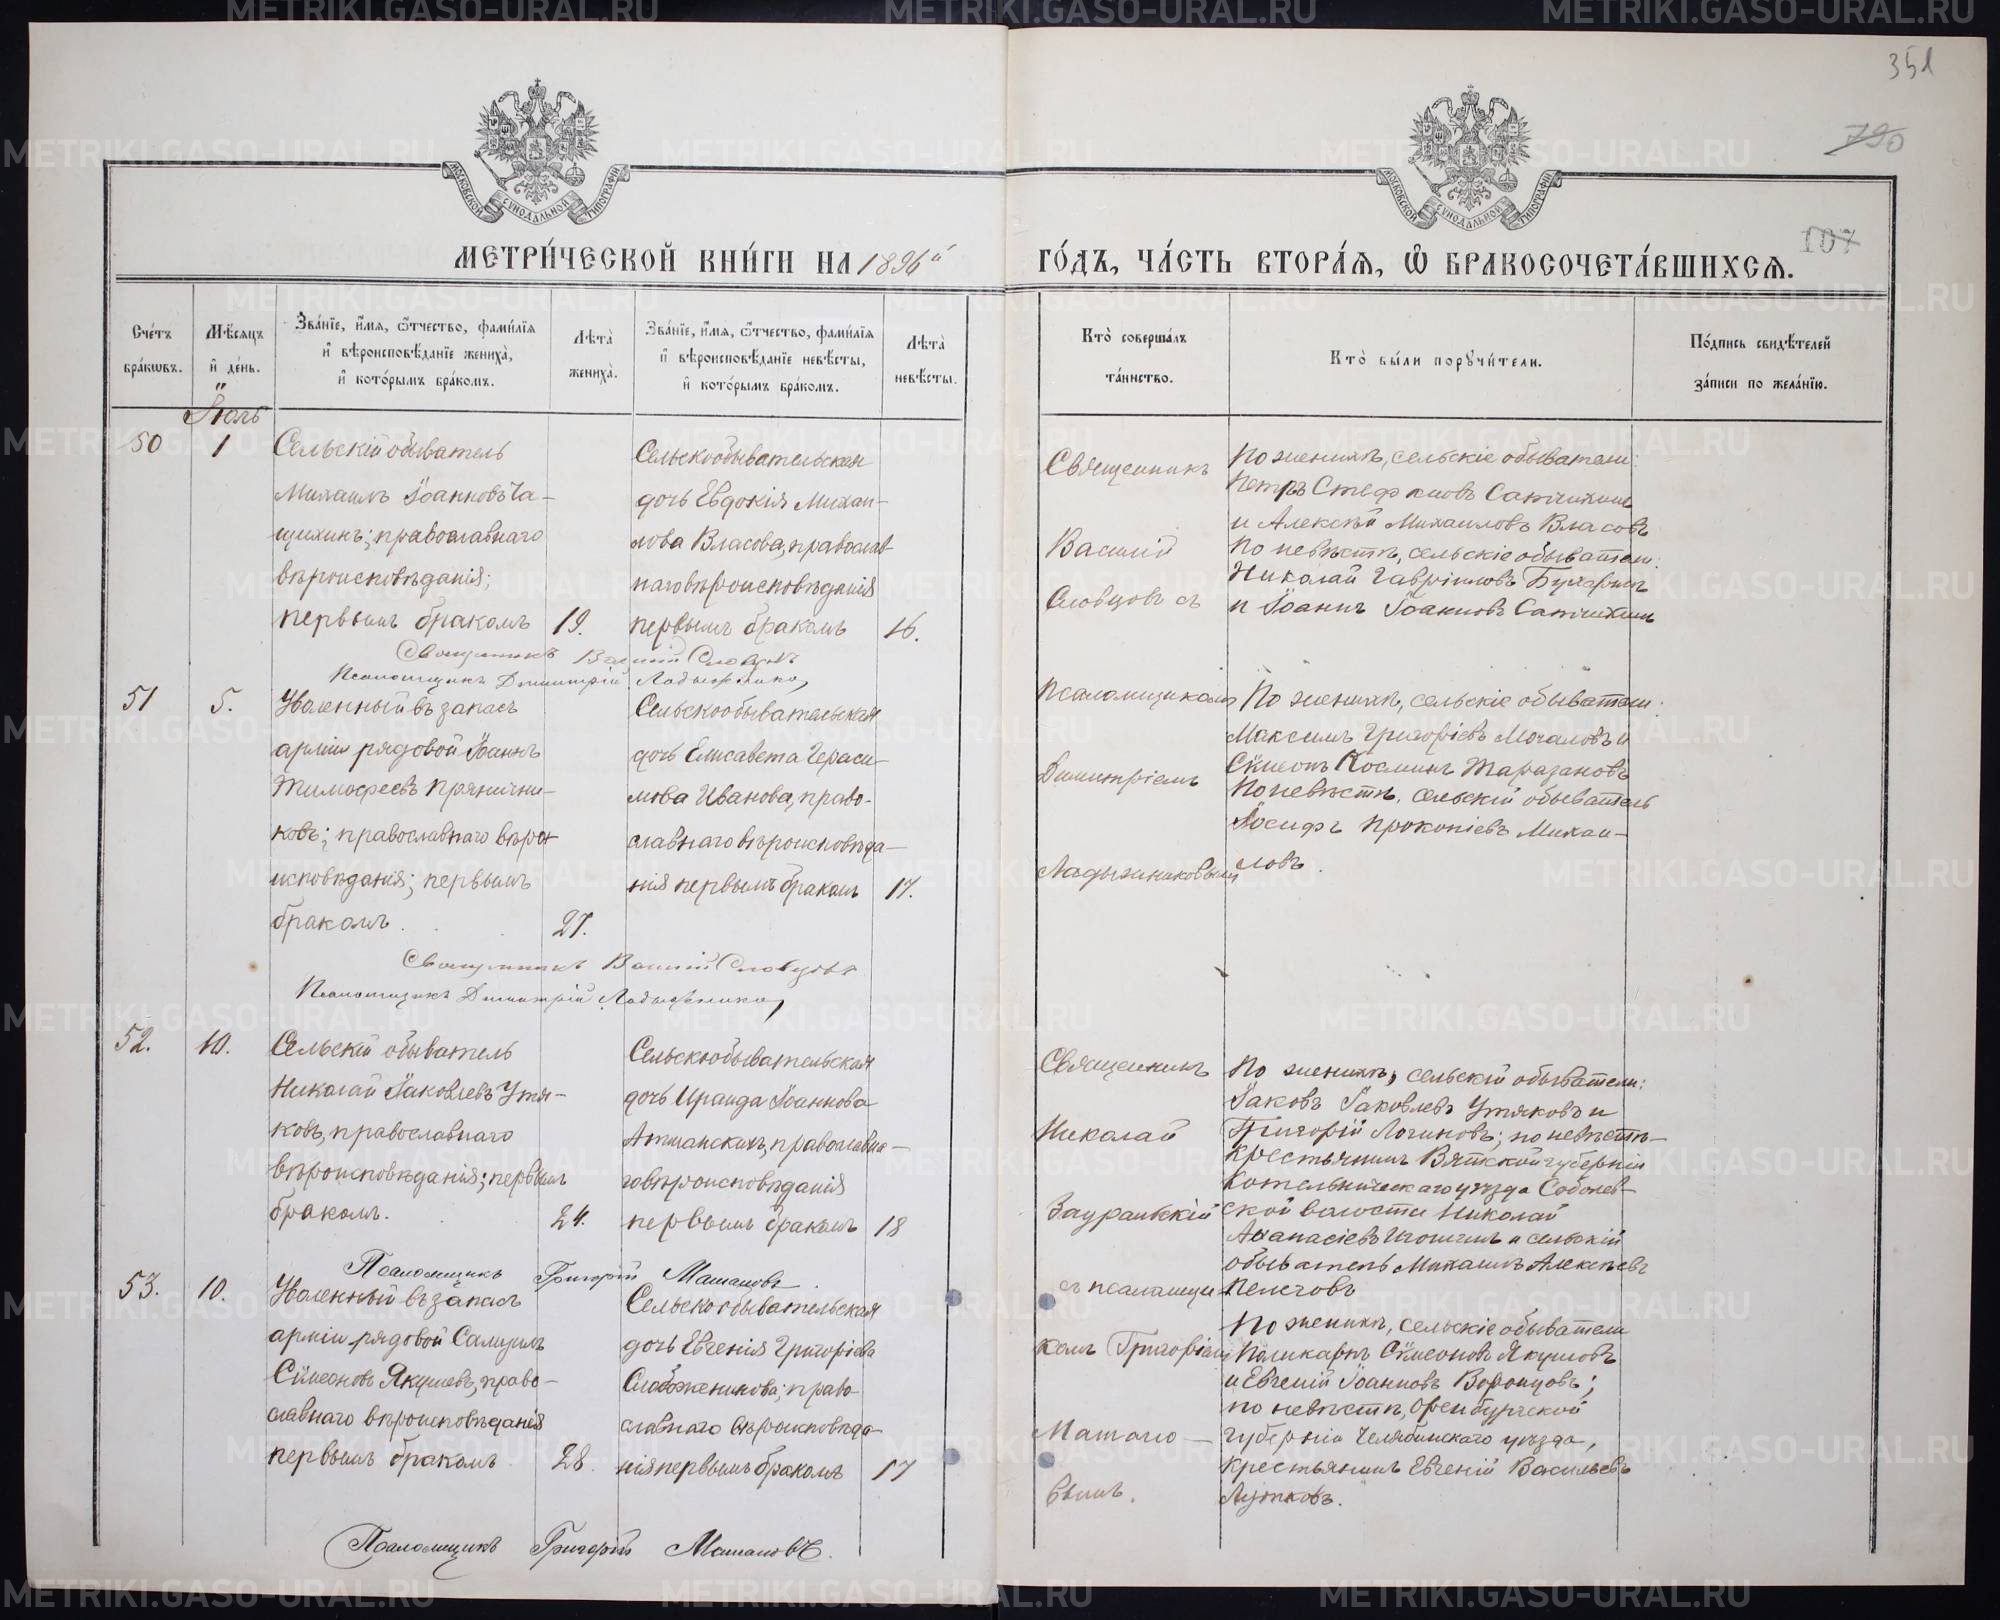 351
790
МОСКОВСКОЙ СѴНОДАЛЬНОЙ ТИПОГРАФІИ
МОСКОВСКОЙ СѴНОДАЛЬНОЙ ТИПОГРАФІИ
МЕТРИ́ЧЕСКОЙ КНИ́ГИ НА 1896й
ГО́ДЪ, ЧА́СТЬ ВТОРА́Ѧ, Ѡ҆ БРАКОСОЧЕТА́ВШИХСѦ.
107
Сче́тъ бра́кѡвъ.
Мѣ́сяцъ и҆ де́нь.
Зва́нїе, и҆́мѧ, ѻ҆́тчество, фами́лїѧ и҆ вѣроисповѣ́данїе жениха̀, и҆ кото́рымъ бра́комъ.
Лѣ́та жениха̀.
Зва́нїе, и҆́мѧ, ѻ҆́тчество, фами́лїѧ и҆ вѣроисповѣ́данїе невѣ́сты, и҆ кото́рымъ бра́комъ.
Лѣ́та невѣ́сты.
Кто̀ соверша́лъ та́инство.
Кто̀ бы́ли порꙋчи́тели.
По́дпись свидѣ́телей за́писи по жела́нїю.
Іюль
50
1
Сельскій обыватель
Михаилъ Іоанновъ Ча-
щихинъ; православнаго
вѣроисповѣданія;
первымъ бракомъ
19.
Сельскообывательская
дочь Евдокія Михаи-
лова Власова, православ-
наго вѣроисповѣданія
первымъ бракомъ
16.
Священникъ
Василій
Словцовъ съ
По женихѣ, сельскіе обыватели:
Петръ Стефановъ Сатчихинъ
и Алексѣй Михаиловъ Власовъ
По невѣстѣ, сельскіе обыватели:
Николай Гавріиловъ Бухаринъ
и Іоаннъ Іоанновъ Сатчихинъ
Священникъ Василій Словцовъ
Псаломщикъ Димитрій Ладыжниковъ
51
5.
Уволенный въ запасъ
арміи рядовой Іоаннъ
Тимофеевъ Прянични-
ковъ; православнаго вѣро-
исповѣданія; первымъ
бракомъ.
27.
Сельскообывательская
дочь Елисавета Гераси-
мова Иванова, право-
славнаго вѣроисповѣда-
нія первымъ бракомъ
17.
Псаломщикомъ
Димитріемъ
Ладыжниковымъ
По женихѣ, сельскіе обыватели:
Максимъ Григорьевъ Мочаловъ и
Сѵмеонъ Косминъ Таразановъ
По невѣстѣ, сельскій обыватель
Іосифъ Прокопіевъ Михаи-
ловъ.
Священникъ Василій Словцовъ
Псаломщикъ Димитрій Ладыжниковъ
52.
10.
Сельскій обыватель
Николай Іаковлевъ Утя-
ковъ, православнаго
вѣроисповѣданія; первымъ
бракомъ.
24.
Сельскообывательская
дочь Ираида Іоаннова
православна-
го вѣроисповѣданія
первымъ бракомъ
18
Священникъ
Николай
Зауральскій
По женихѣ, сельскій обыватели:
Іаковъ Іаковлевъ Утяковъ и
Григорій Логиновъ; по невѣстѣ-
крестьянинъ Вятской губерніи
Котельническаго уѣзда Соболев-
ской волости Николай
Аѳанасіевъ и сельскій
обыватель Михаилъ Алексѣевъ
Псаломщикъ Григорій Маталовъ.
53.
10.
Уволенный въ запасъ
арміи рядовой Самуилъ
Сѵмеоновъ Якушевъ, право-
славнаго вѣроисповѣданія
первымъ бракомъ
28.
Сельскообывательская
дочь Евгенія Григоріева
право-
славнаго вѣроисповѣда-
нія первымъ бракомъ
17
съ псаломщи-
комъ Григоріемъ
Матало-
вымъ.
По женихѣ, сельскіе обыватели
Поликарпъ Сѵмеоновъ Якушовъ
и Евгеній Іоанновъ Воронцовъ;
по невѣстѣ, Оренбургской
губерніи Челябинскаго уѣзда,
крестьянинъ Евгеній Васильевъ
Псаломщикъ Григорій Маталовъ.
METRIKI.GASO-URAL.RU